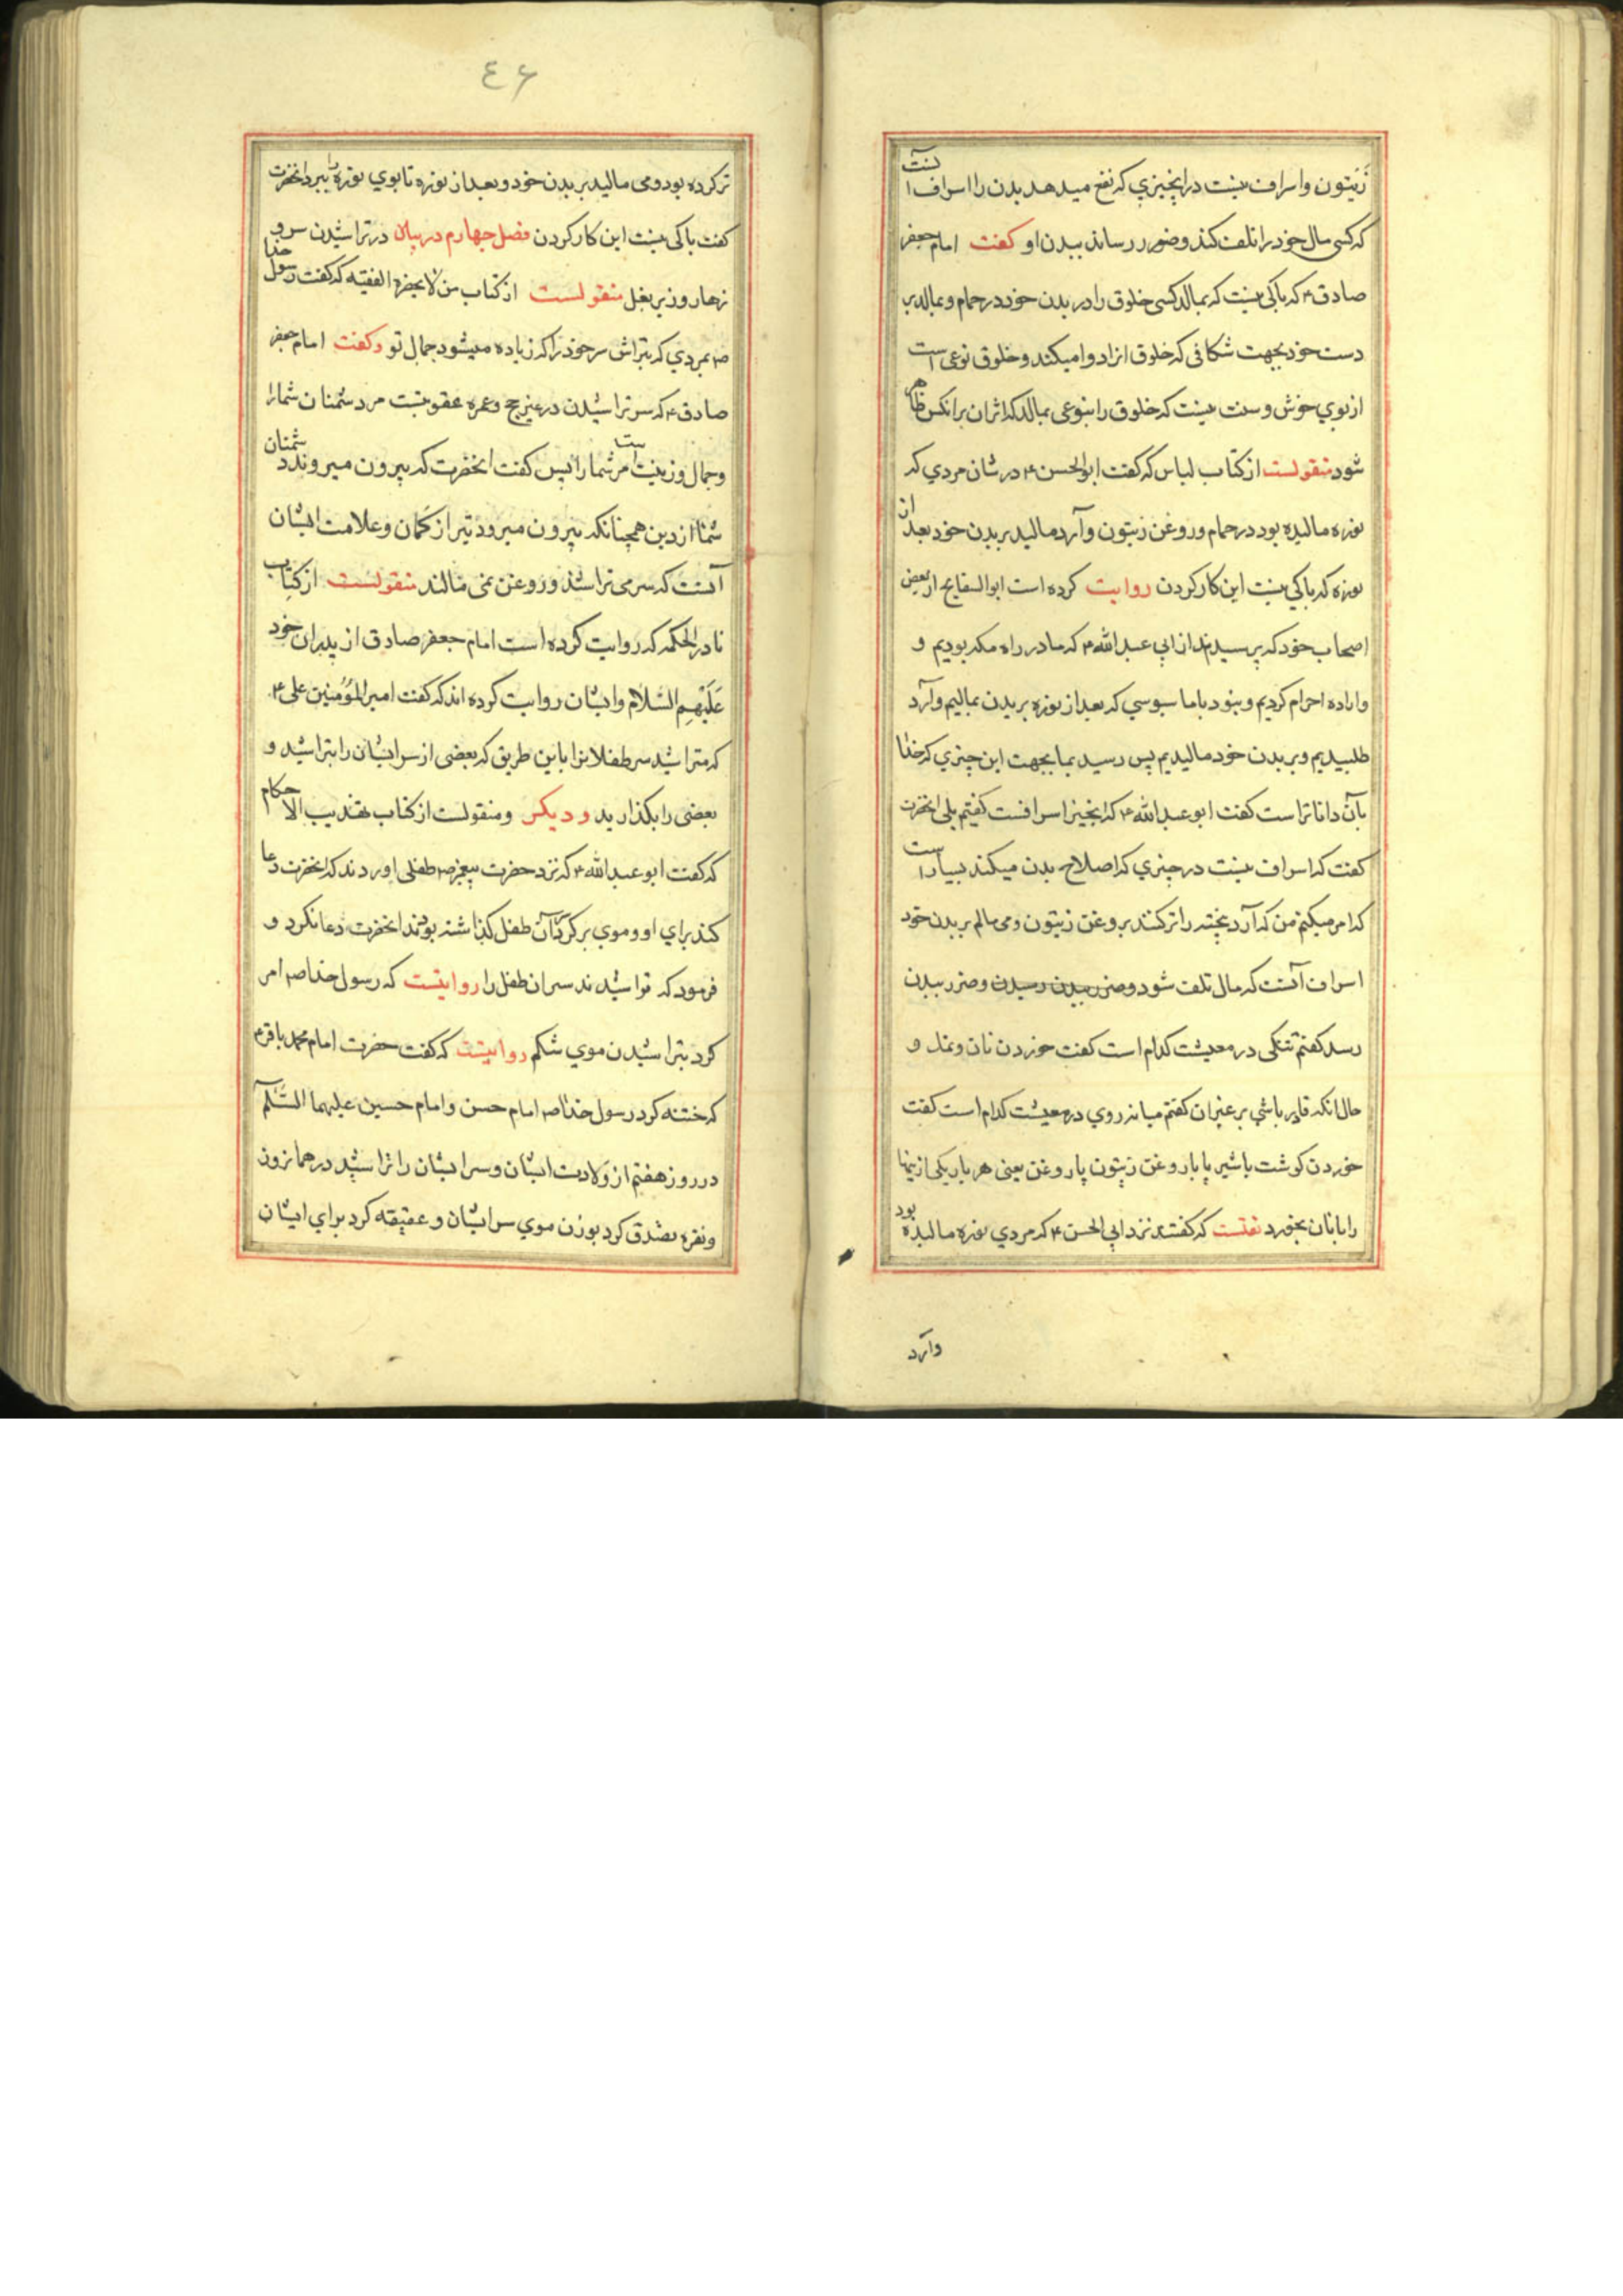 زَیتون واسراف نیست دراین‌چیزي که نفع میدهد بدن را اسراف آنست
که کسی مال خود را تلف کند وضرر رساند ببدن او کفت امام جعفر
صادق ۴ که باکی نیست که بمالد کسی خلوق را در بدن خود در حمام وبمالد بر
دست خود بجهت شکافی که خلوق انرا دوا میکند وخلوق نوعی است
از بوي خوش وسنت نیست که خلوق را بنوعی بمالد که اثر ان بر انکس ظاهر
شود منقولست از کتاب لباس که کفت ابوالحسن ۴ در شان مردي که
نوره مالیده بود در حمام وروغن زیتون وآرد مالید بر بدن خود بعد از
نوره که باکي نیست این کار کردن روایت کرده است ابوالسفایج از بعض
اصحاب خود که پرسیدند از ابي عبد الله ۴ که ما در راه مکه بودیم و
واراده احرام کردیم ونبود باما سبوسي که بعد از نوره بر بدن بمالیم وآرد
طلبیدیم وبر بدن خود مالیدیم پس رسید بما بجهت این چیزي که خدا
بآن داناتر است کفت ابو عبد الله ۴ که ایا بجهت اسرافست کفتم بلی انحضرت
کفت که اسراف نیست در چیزي که اصلاح بدن میکند بسیار است
که امر میکنم من که آرد بیخته را تر کنند بروغن زیتون ومی مالم بر بدن خود
اسراف آنست که مال تلف شود وضرر ببدن رسیدن وضرر ببدن
رسد کفتم تنکی در معیشت کدام است کفت خوردن نان ونمک و
حال انکه قادر باشي بر غیر ان کفتم میانه روي در معیشت کدام است کفت
خوردن کوشت باشیر یا با روغن زیتون یا روغن یعنی هر بار یکی از اینها
را با نان بخورد نقلست که کفتند نزد ابي الحسن ۴ که مردي نوره مالیده بود
وآرد
٤۶
تر کرده بود ومی مالید بر بدن خود وبعد از نوره تا بوي نوره را ببرد انحضرت
کفت باکی نیست این کار کردن فصل چهارم در بیان در تراشیدن سر و
زهار وزیر بغل منقولست از کتاب من لا یحضره الفقیه که کفت رسول خدا
ص بمردي که بتراش سر خود را که زیاده میشود جمال تو وکفت امام جعفر
صادق ۴ که سر تراشیدن در غیر حج وعمره عقوبتست مر دشمنان شما را
وجمال وزینت است مر شما را پس کفت انحضرت که بیرون میروند دشمنان
شما از دین همچنانکه بیرون میرود تیر از کمان وعلامت ایشان
آنست که سر می تراشند وروغن نمی مالند منقولست از کتاب
نادر الحکمه که روایت کرده است امام جعفر صادق از پدران خود
عَلَیْهِم السَّلام وایشان روایت کرده اند که کفت امیر المؤمنین علی ۴
که متراشید سر طفلانرا باین طریق که بعضی از سر ایشان را بتراشید و
بعضی را بکذارید ودیکر ومنقولست از کتاب تهذیب الاحکام
که کفت ابو عبد الله ۴ که نزد حضرت پیغمبر ص طفلی اوردند که انحضرت دعا
کند براي او وموي بر کرد سر آن طفل کذاشته بودند انحضرت دعا نکرد و
فرمود که تراشیدند سر ان طفل را روایتست که رسول خدا ص امر
کرد بتراشیدن موي شکم روایتست که کفت حضرت امام محمد باقر ۴
که ختنه کرد رسول خدا ص امام حسن وامام حسین علیهما السَّلم
در روز هفتم از ولادت ایشان وسر ایشان را تراشید در همان روز
ونقره تصدق کرد بوزن موي سر ایشان وعقیقه کرد براي ایشان